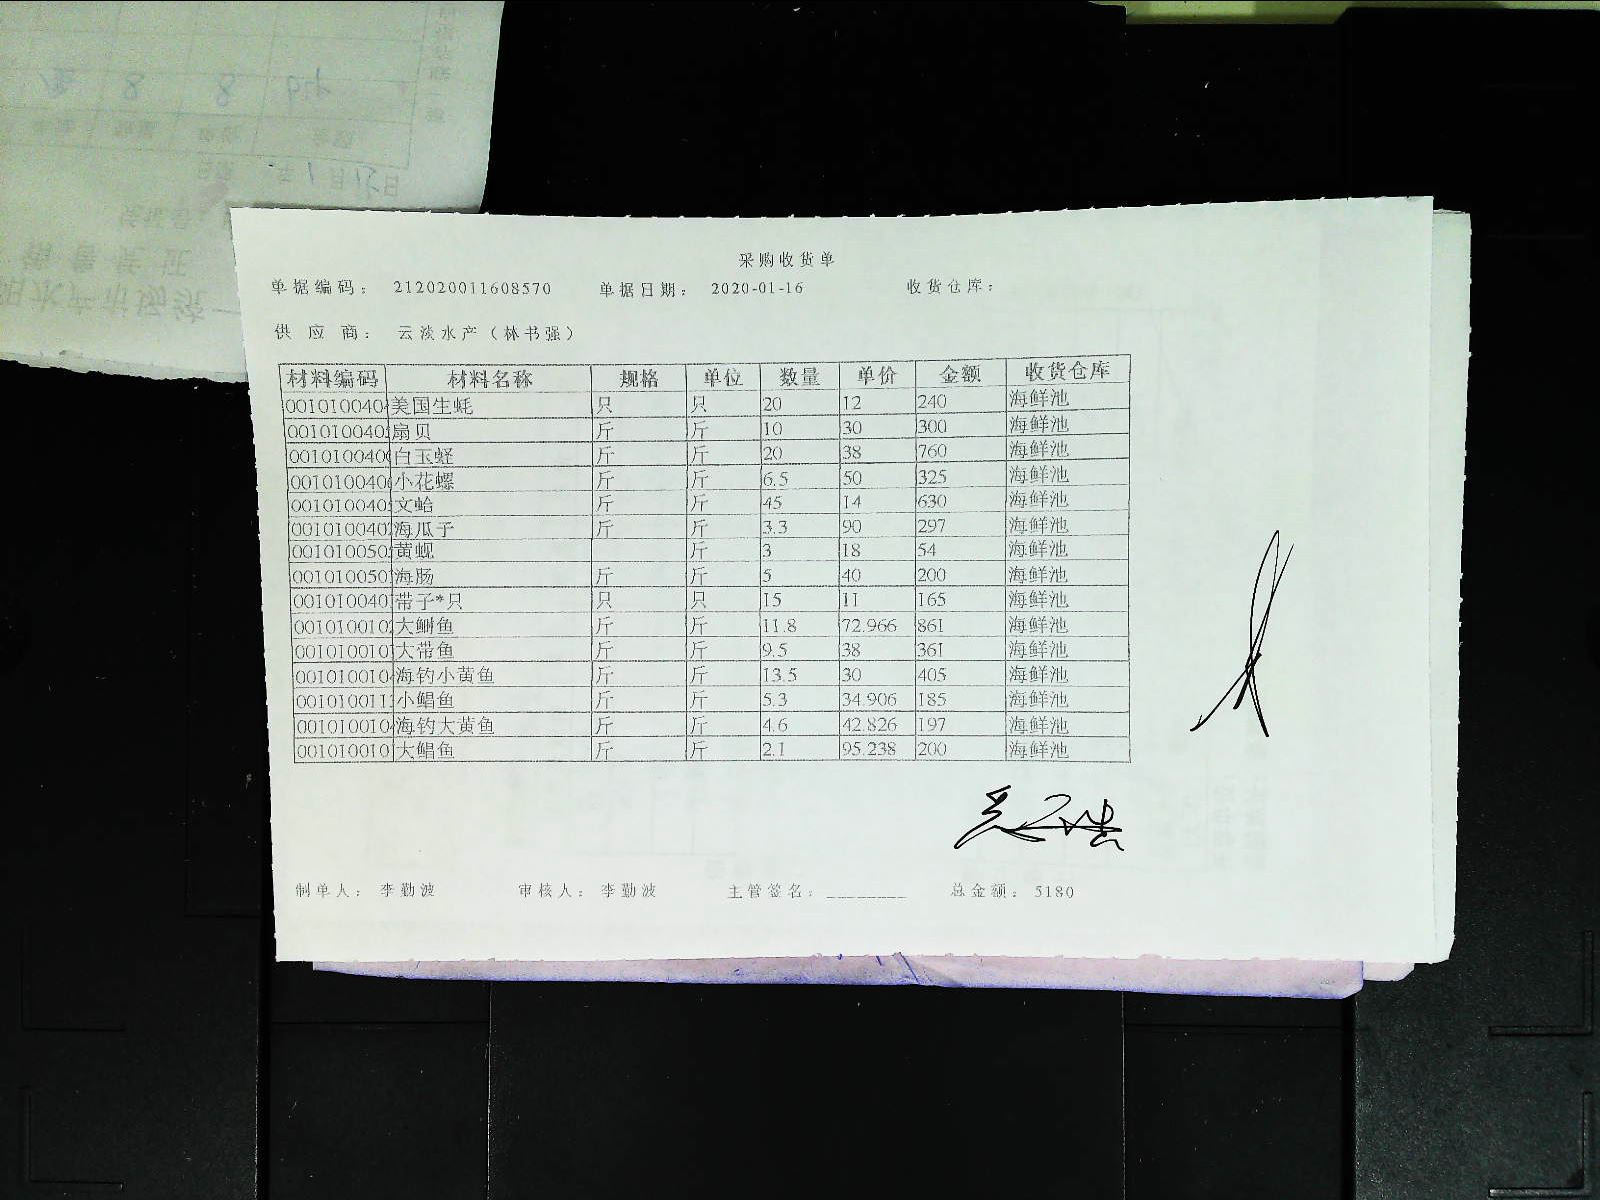 采购收货单
单据编码： 212020011608570 单据日期： 2020-01-16 收货仓库：
供 应 商： 云淡水产（林书强）
材料编码 材料名称 规格 单位 数量 单价 金额 收货仓库
001010040 美国生蚝 只 只 20 12 240 海鲜池
001010040 扇贝 斤 斤 10 30 300 海鲜池
001010040 白玉蛏 斤 斤 20 38 760 海鲜池
001010040 小花螺 斤 斤 6.5 50 325 海鲜池
001010040 文蛤 斤 斤 45 14 630 海鲜池
001010040 海瓜子 斤 斤 3.3 90 297 海鲜池
001010050 黄蚬 斤 3 18 54 海鲜池
001010050 海肠 斤 斤 5 40 200 海鲜池
001010040 带子*只 只 只 15 11 165 海鲜池
001010010 大鳓鱼 斤 斤 11.8 72.966 861 海鲜池
001010010 大带鱼 斤 斤 9.5 38 361 海鲜池
001010010 海钓小黄鱼 斤 斤 13.5 30 405 海鲜池
001010011 小鲳鱼 斤 斤 5.3 34.906 185 海鲜池
001010010 海钓大黄鱼 斤 斤 4.6 42.826 197 海鲜池
001010010 大鲳鱼 斤 斤 2.1 95.238 200 海鲜池
制单人： 李勤波 审核人： 李勤波 主管签名：________ 总金额： 5180